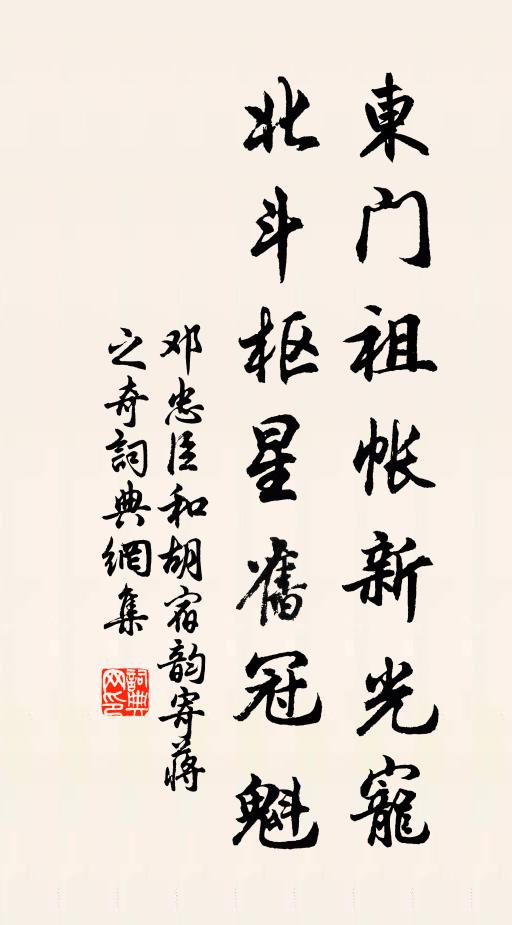 東门祖帐新光寵
北斗枢星舊冠魁
邓忠臣和胡宿韵寄蒋
之奇詞典網集
詞典网印